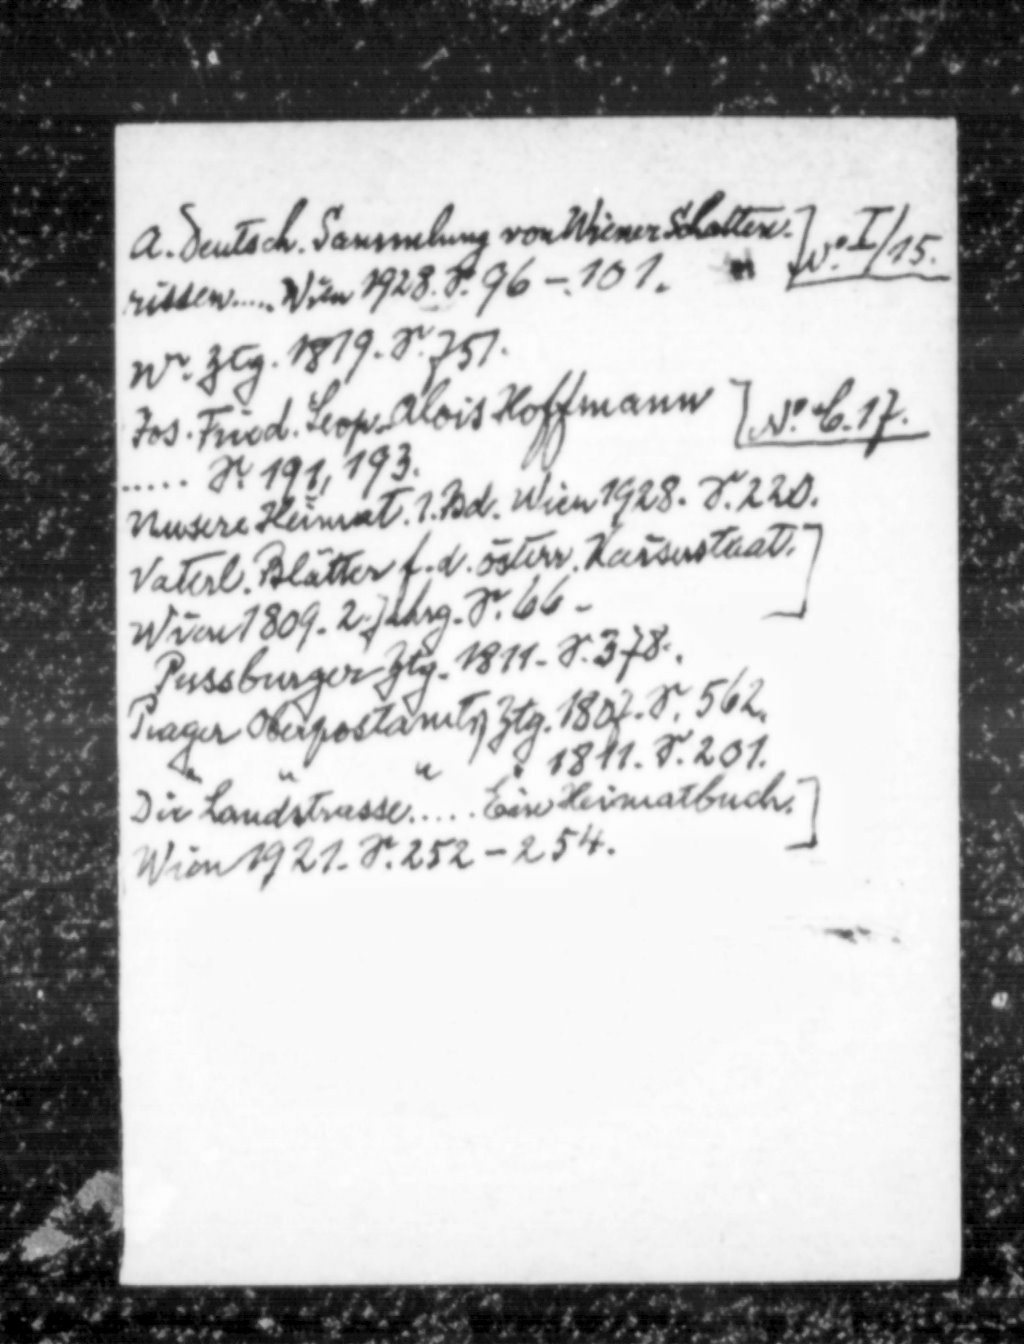 A. Deutsch. Sammlung von Wiener Schatten.] No. I/15.
rissen..... Wien 1928. S. 96 - 101.
Wr. Ztg. 1819. S. 751.
Jos. Fried. Leop. Alois Hoffmann ] No. C. 17.
..... S. 191, 193.
Unsere Heimat. 1. Bd. Wien 1928. S. 220.
Vaterl. Blätter f. d. österr. Kaiserstaat.]
Wien 1809. 2. Jahrg. S. 66 -
Pressburger Ztg. 1811. S. 378.
Prager Oberpostamts Ztg. 1807. S. 562.
" " " " 1811. S. 201.
Die Landstrasse..... Ein Heimatbuch.]
Wien 1921. S. 252 - 254.